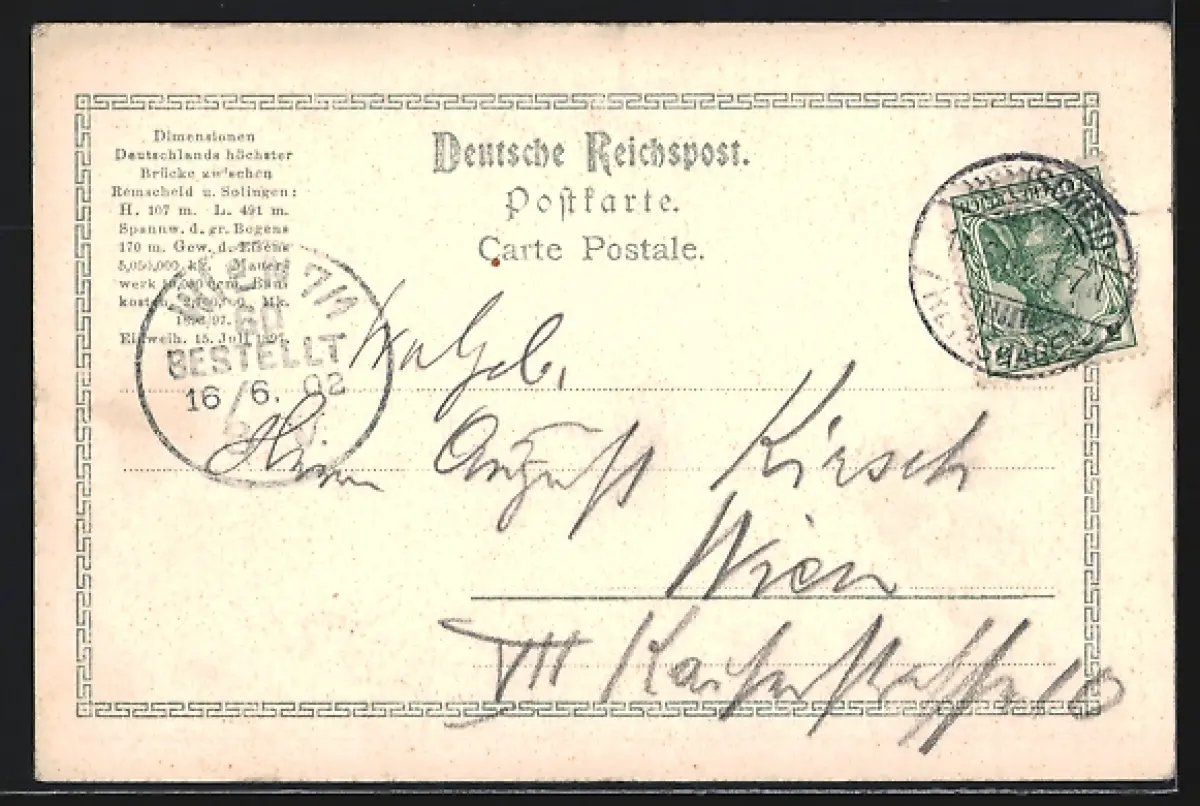 Dimensionen
Deutschlands höchster
Brücke zwischen
Remscheid u. Solingen:
H. 107 m. L. 491 m.
Spannw. d. gr. Bogens
170 m. Gew. d. Eisens
5,050,000 kg. Mauer-
werk cbm. Bau-
kosten Mk.
Einweih. 15. Juli
Deutsche Reichspost.
Postkarte.
Carte Postale.
WIEN 7/1
60
BESTELLT
16/6. 02
Herrn August Kirsch
Wien
VII Kaiserstraße 10